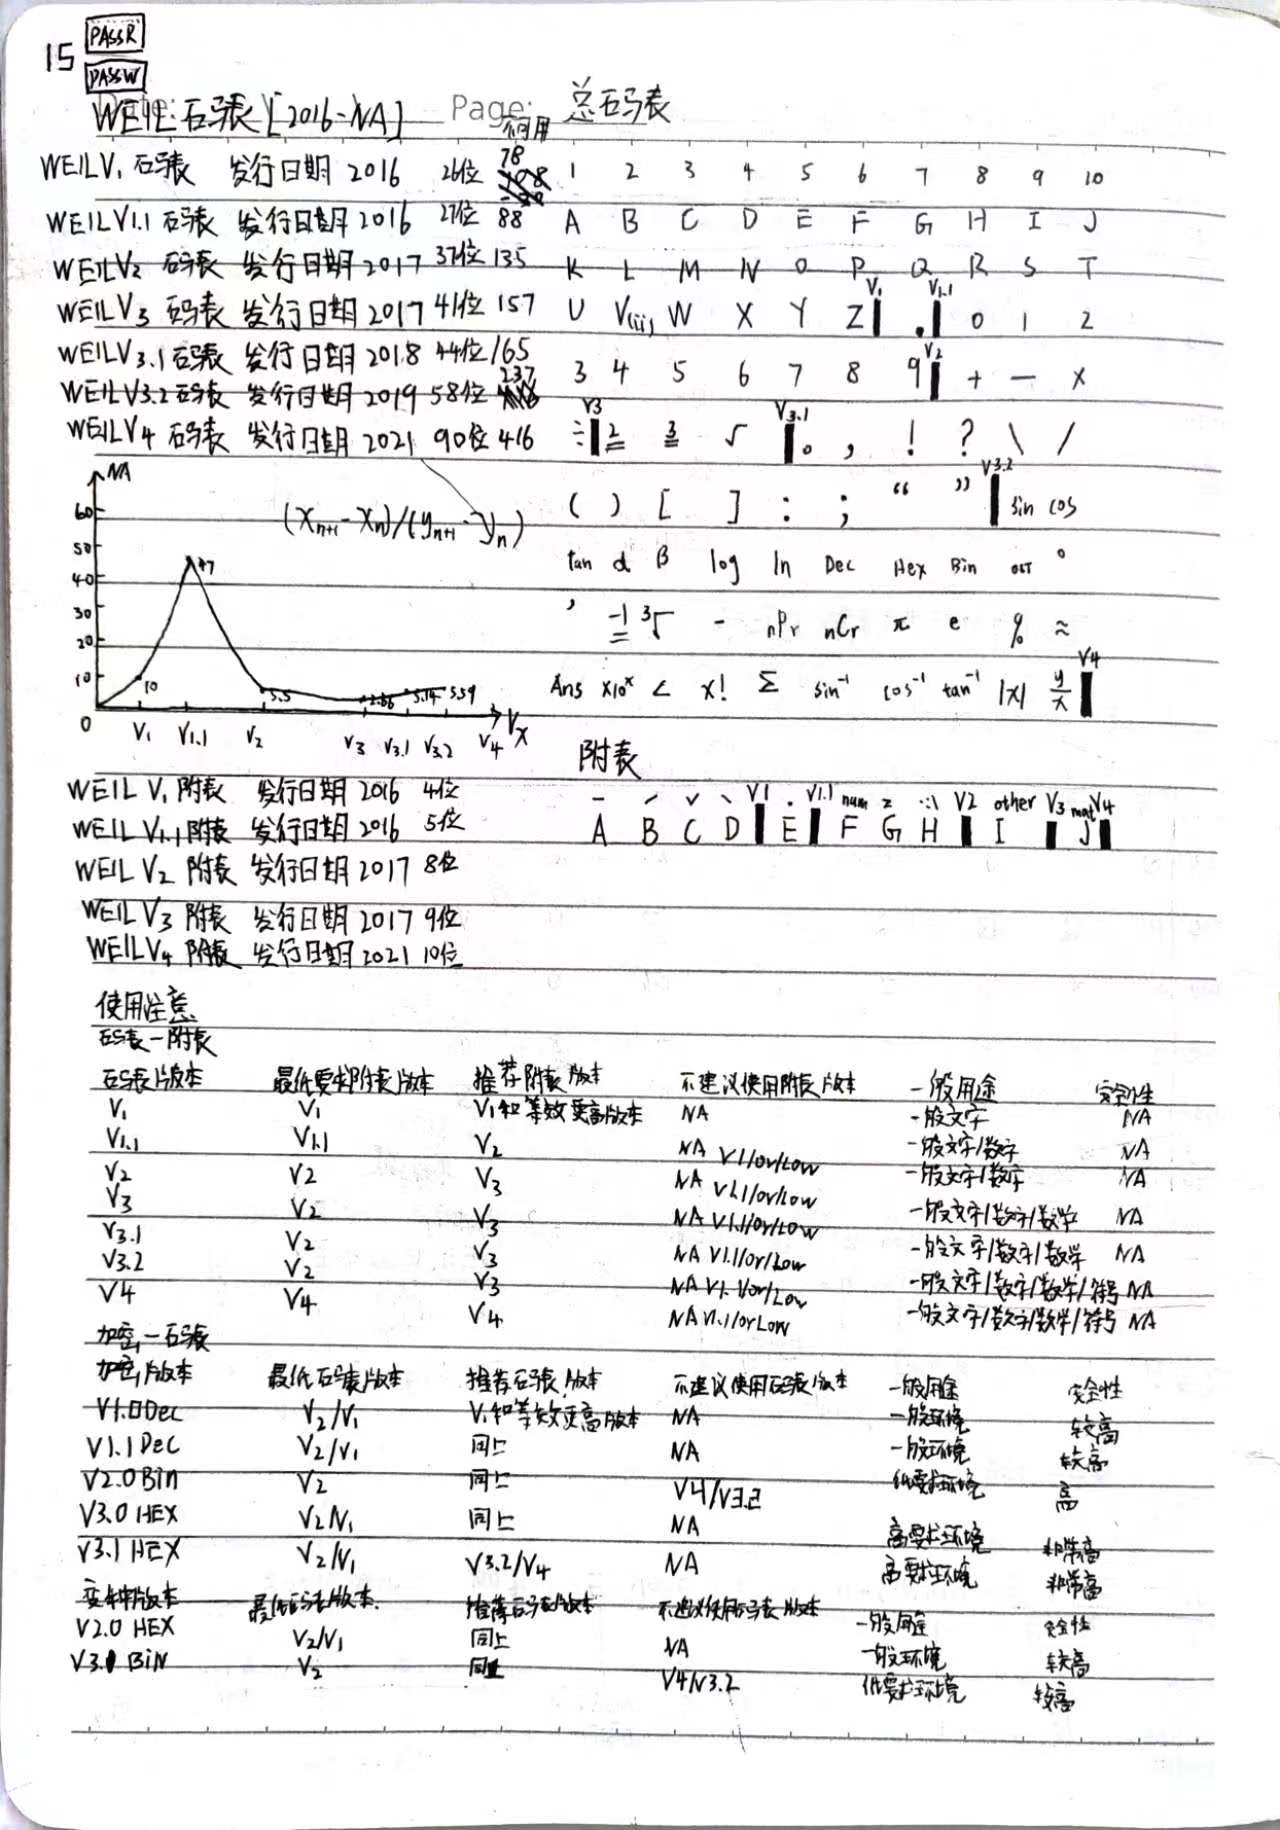 15 PASSR
PASSW
WEIL 码表 [2016-NA] Page: 总码表
可用
WEIL V1 码表 发行日期 2016 26位 78 1 2 3 4 5 6 7 8 9 10
WEIL V1.1 码表 发行日期 2016 27位 88 A B C D E F G H I J
WEIL V2 码表 发行日期 2017 37位 135 K L M N O P Q R S T
V1 V1.1
WEIL V3 码表 发行日期 2017 41位 157 U V(ü) W X Y Z . 0 1 2
V2
WEIL V3.1 码表 发行日期 2018 44位 165 3 4 5 6 7 8 9 + - ×
WEIL V3.2 码表 发行日期 2019 58位 237
V3 V3.1
WEIL V4 码表 发行日期 2021 90位 416 ÷ 2 3 √ 。 , ! ? \ /
V3.2
( ) [ ] : ; “ ” sin cos
tan α β log ln Dec Hex Bin OCT °
’ -1 ³√ - nPr nCr π e % ≈
V4
Ans ×10ˣ < x! Σ sin⁻¹ cos⁻¹ tan⁻¹ |x| y/x
NA
(Xn+1 - Xn)/(yn+1 - yn)
60
50
40 47
30
20
10 10 5.5 2.66 5.14 5.59
0 V1 V1.1 V2 V3 V3.1 V3.2 V4 Vx
附表
WEIL V1 附表 发行日期 2016 4位 - ˊ ˇ ˋ V1 · V1.1 num V2 other V3 mat V4
WEIL V1.1 附表 发行日期 2016 5位 A B C D E F G H I J
WEIL V2 附表 发行日期 2017 8位
WEIL V3 附表 发行日期 2017 9位
WEIL V4 附表 发行日期 2021 10位
使用注意
码表-附表
码表版本 最低要求附表版本 推荐附表版本 不建议使用附表版本 一般用途 安全性
V1 V1 V1和等效更高版本 NA 一般文字 NA
V1.1 V1.1 V2 NA V1.1/or/Low 一般文字/数字 NA
V2 V2 V3 NA V1.1/or/Low 一般文字/数字 NA
V3 V2 V3 NA V1.1/or/Low 一般文字/数字/数学 NA
V3.1 V2 V3 NA V1.1/or/Low 一般文字/数字/数学 NA
V3.2 V2 V3 NA V1.1/or/Low 一般文字/数字/数学/符号 NA
V4 V4 V4 NA V1.1/or Low 一般文字/数字/数学/符号 NA
加密-码表
加密版本 最低码表版本 推荐码表版本 不建议使用码表版本 一般用途 安全性
V1.0 Dec V2/V1 V1和等效更高版本 NA 一般环境 较高
V1.1 Dec V2/V1 同上 NA 一般环境 较高
V2.0 Bin V2 同上 V4/V3.2 低要求环境 高
V3.0 HEX V2/V1 同上 NA 高要求环境 非常高
V3.1 HEX V2/V1 V3.2/V4 NA 高要求环境 非常高
变种版本 最低码表版本 推荐码表版本 不建议使用码表版本 一般用途 安全性
V2.0 HEX V2/V1 同上 NA 一般环境 较高
V3.0 BiN V2 同上 V4/V3.2 低要求环境 较高